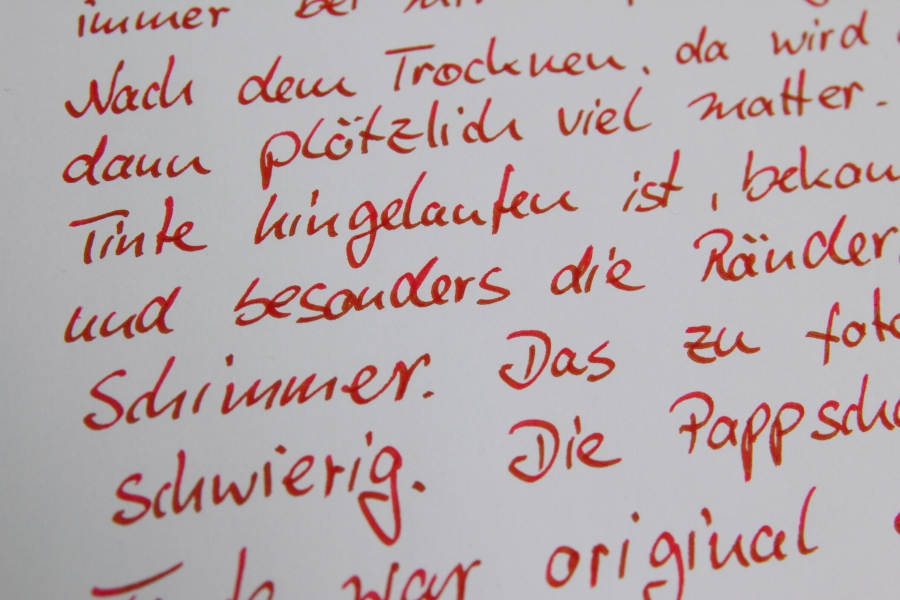 immer bei mir
Nach dem Trocknen, da wird
dann plötzlich viel matter.
Tinte hingelaufen ist, bekom
und besonders die Ränder
Schimmer. Das zu foto
schwierig. Die Pappscha
Tinte war original